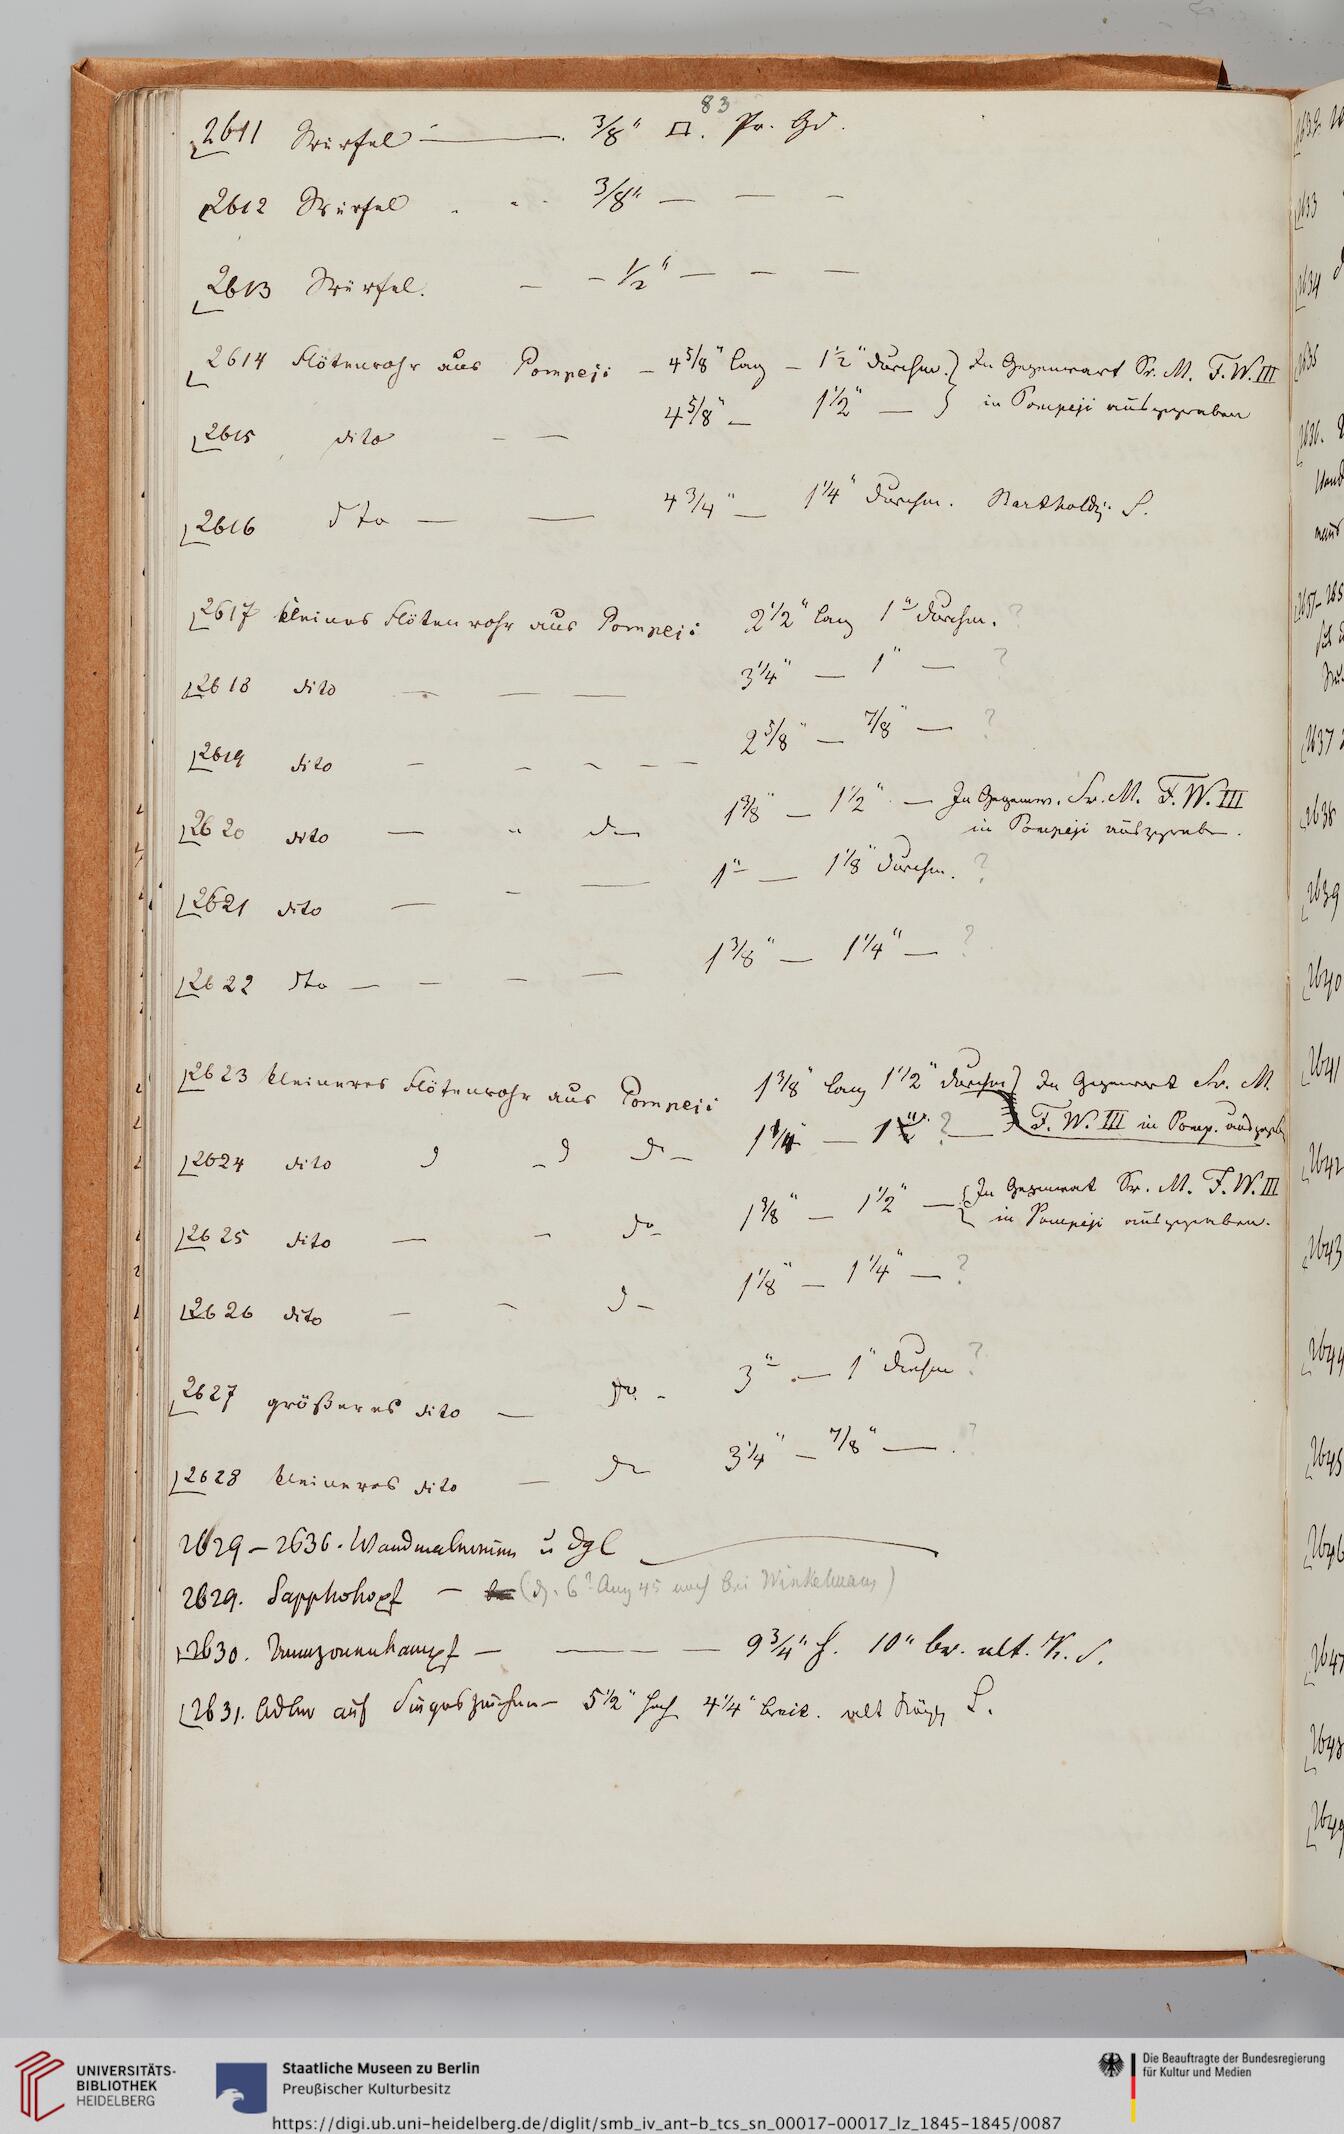 83
2611 Würfel — 3/8" □. Pr. Gd.
2612 Würfel . - . 3/8" — — —
2613 Würfel. — — 1/2" — — —
2614 Flötenrohr aus Pompeji — 4 5/8" lang — 1 1/2" durchm. } In Gegenwart Sr. M. F. W. III
2615 dito — — 4 5/8" — 1 1/2" — } in Pompeji ausgegraben
2616 dto — — 4 3/4" — 1 1/4" durchm. Bartholdy. S.
2617 kleines Flötenrohr aus Pompeji 2 1/2" lang 1" durchm. ?
2618 dito — — — 3 1/4" — 1" — ?
2619 dito — — — — — 2 5/8" — 7/8" — ?
2620 dito — " do 1 3/8" — 1 1/2" — In Gegenw. Sr. M. F. W. III
in Pompeji ausgegraben.
2621 dito — - — 1" — 1 1/8" durchm. ?
2622 dto — — — — 1 3/8" — 1 1/4" — ?
2623 kleineres Flötenrohr aus Pompeji 1 3/8" lang 1 1/2" durchm } In Gegenwart Sr. M.
2624 dito do — 1" ? — F. W. III in Pomp. ausgegrab
2625 dito — - do 1 3/8" — 1 1/2" — { In Gegenwart Sr. M. F. W. III
in Pompeji ausgegraben.
2626 dito — - d — 1 1/8" — 1 1/4" — ?
2627 größeres dito — do. - 3" — 1" durchm ?
2628 kleineres dito — do 3 1/4" — 7/8" — . ?
2629 – 2636. Wandmalereien u dgl
2629. Sapphokopf — (d. 6t Aug 45 noch bei Winkelmann)
2630. Amazonenkampf — — — 9 3/4" h. 10" br. alt. K. S.
2631. Adler auf Siegeszeichen — 5 1/2" hoch 4 1/4" breit. alt Königl S.
2632
2633
2634
2635
2636.
2637
2638
2639
2640
2641
2642
2643
2644
2645
2646
2647
2648
2649
UNIVERSITÄTS-
BIBLIOTHEK
HEIDELBERG
Staatliche Museen zu Berlin
Preußischer Kulturbesitz
https://digi.ub.uni-heidelberg.de/diglit/smb_iv_ant-b_tcs_sn_00017-00017_lz_1845-1845/0087
Die Beauftragte der Bundesregierung
für Kultur und Medien